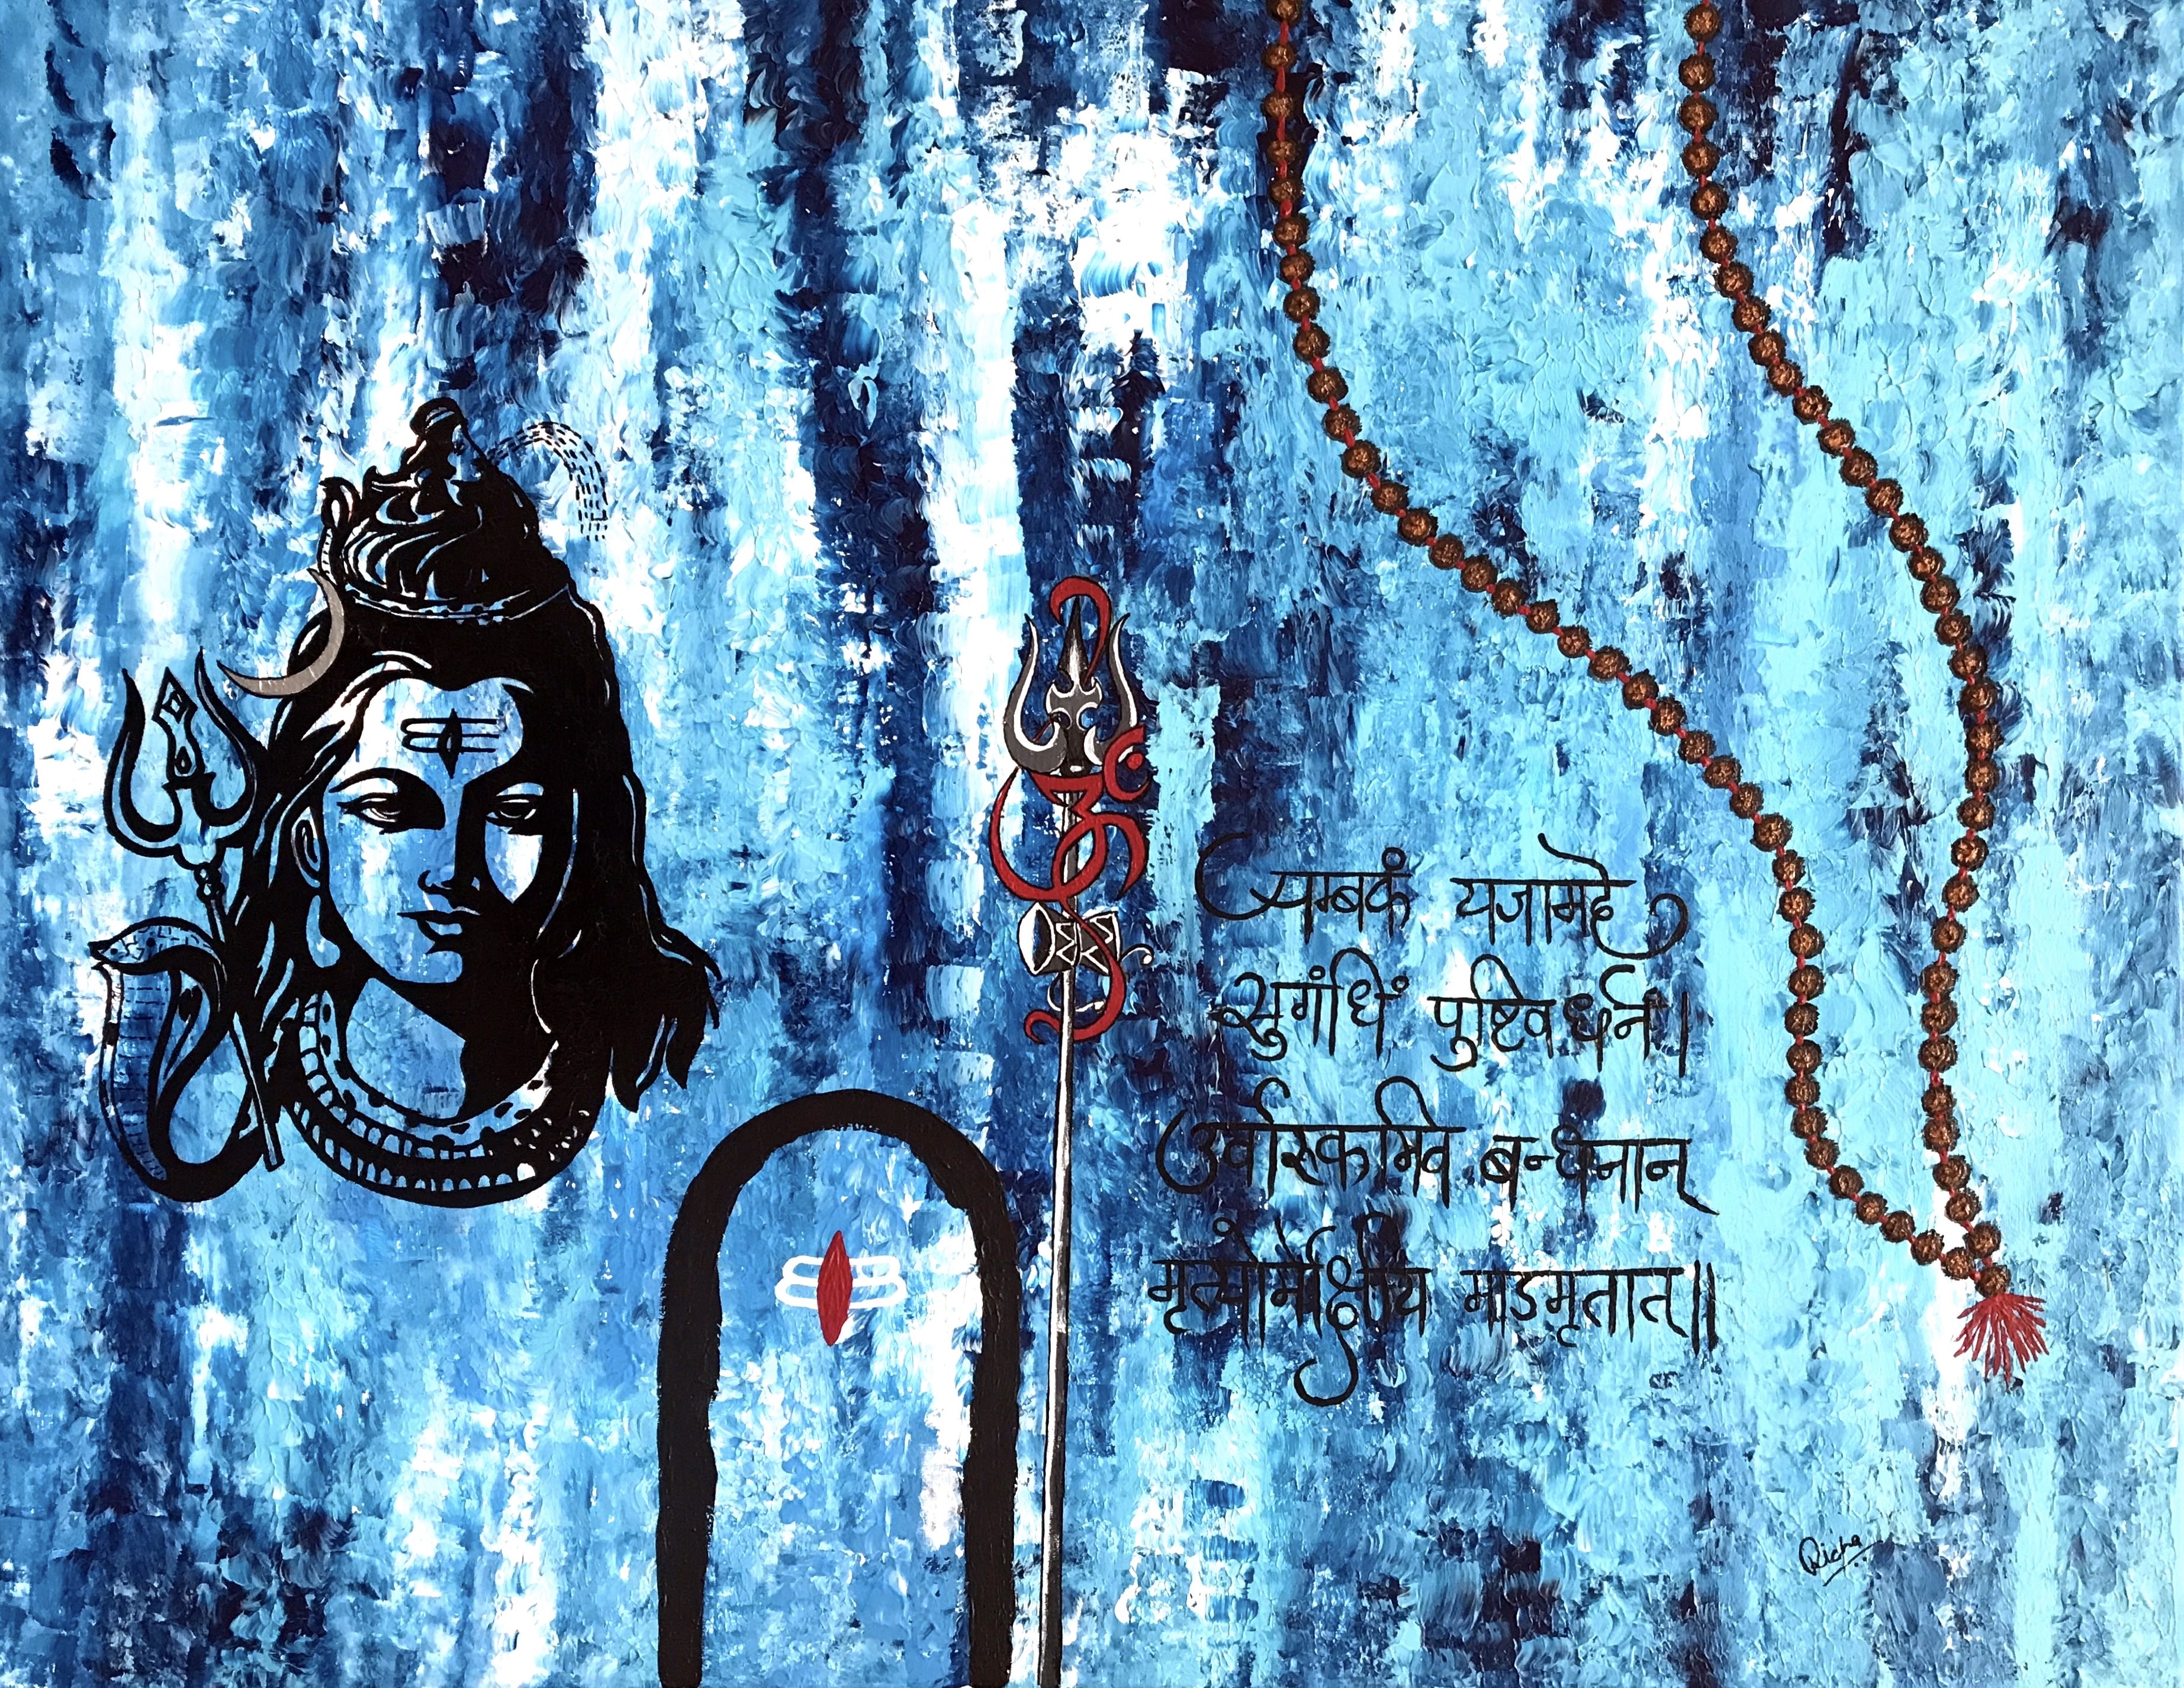 त्र्यम्बकं यजामहे
सुगंधिं पुष्टिवर्धनं।
उर्वारुकमिव बन्धनान्
मृत्योर्मोक्षीय माऽमृतात्॥
Richa